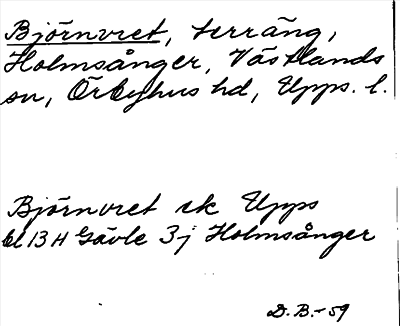 Björnvret, terräng,
Holmsånger, Västlands
sn, Örbyhus hd, Upps. l.
Björnvret ek Upps
bl 13 H Gävle 3j Holmsånger
D.B.-59